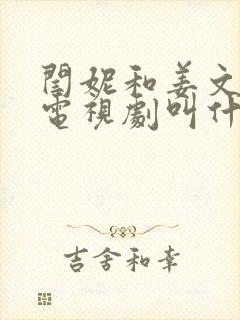 閏妮和姜文
電視劇叫什
吉舍和幸